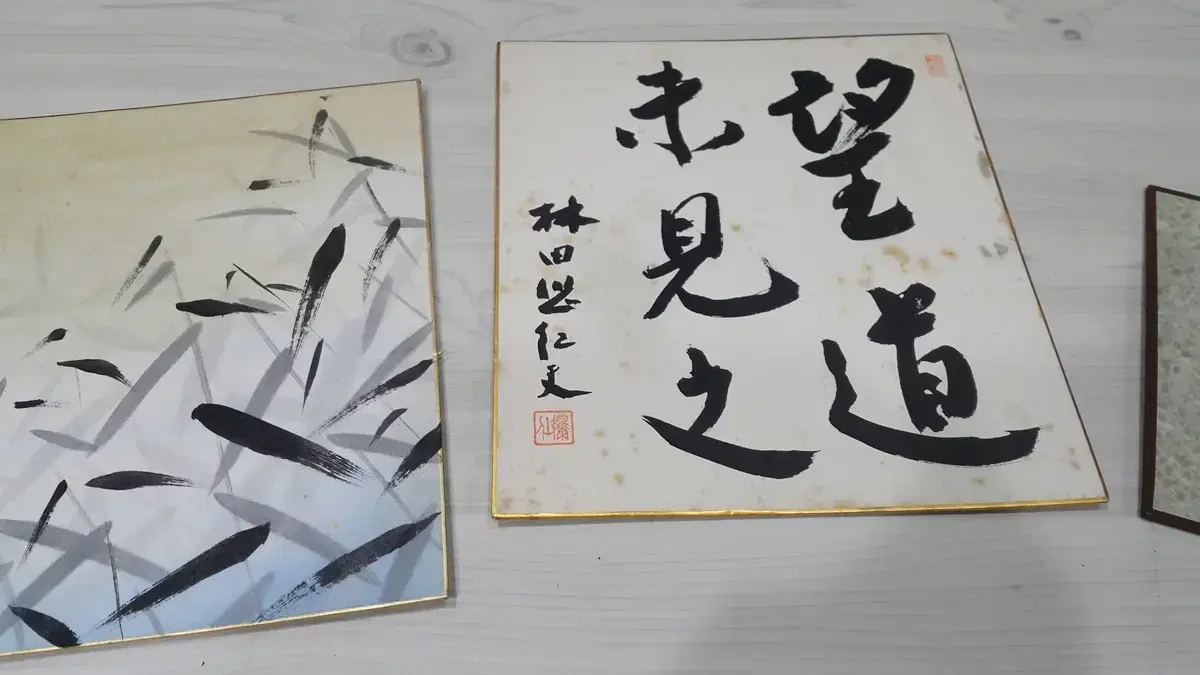 望道
未見之
林田悠紀夫